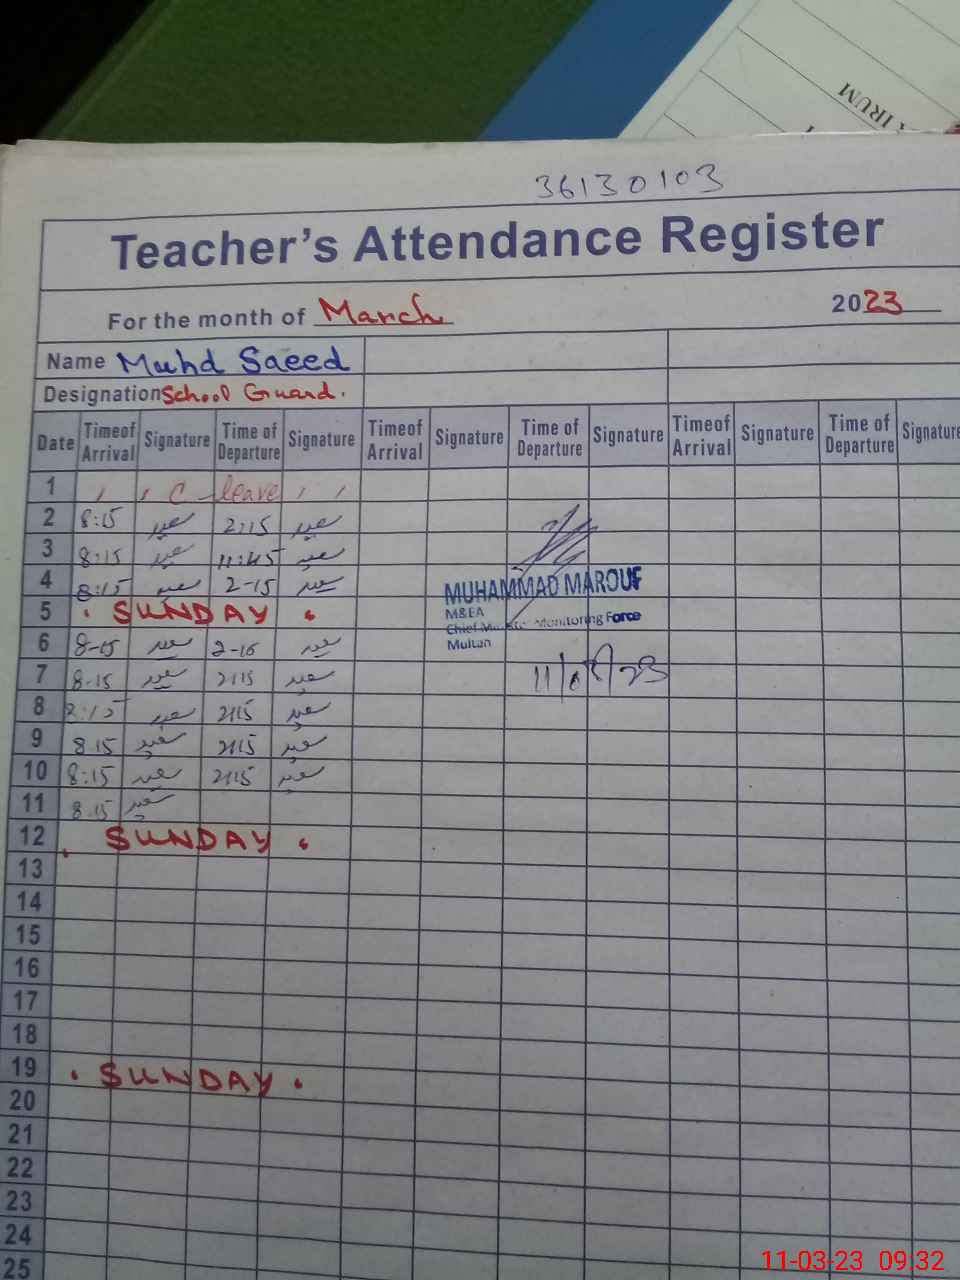 IRUM
36130103
Teacher's Attendance Register
For the month of March 2023
Name Muhd Saeed
Designation School Guard.
Date Timeof Arrival Signature Time of Departure Signature Timeof Arrival Signature Time of Departure Signature Timeof Arrival Signature Time of Departure Signature
1 , , C-leave , ,
2 8:15 سعید 2:15 سعید
3 8:15 سعید 11:45 سعید
4 8:15 سعید 2-15 سعید
5 . SUNDAY .
6 8-15 سعید سعید
7 8-15 سعید 2115 سعید
8 سعید 2115 سعید
9 8 15 سعید 2115 سعید
10 8:15 سعید 2115 سعید
11 8.15 سعید
12 . SUNDAY .
13
14
15
16
17
18
19 . SUNDAY .
20
21
22
23
24
25
MUHAMMAD MAROUF
M&EA
Chief Minister Monitoring Force
Multan
11/03/23
11-03-23 09:32